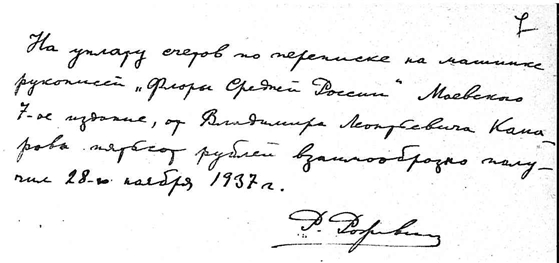 7
На уплату счетов по переписке на машинке
рукописей „Флоры Средней России“ Маевского
7-ое издание, от Владимира Леонтьевича Кома-
рова пятьсот рублей взаимообразно полу-
чил 28-го ноября 1937 г.
Р. Рожевиц